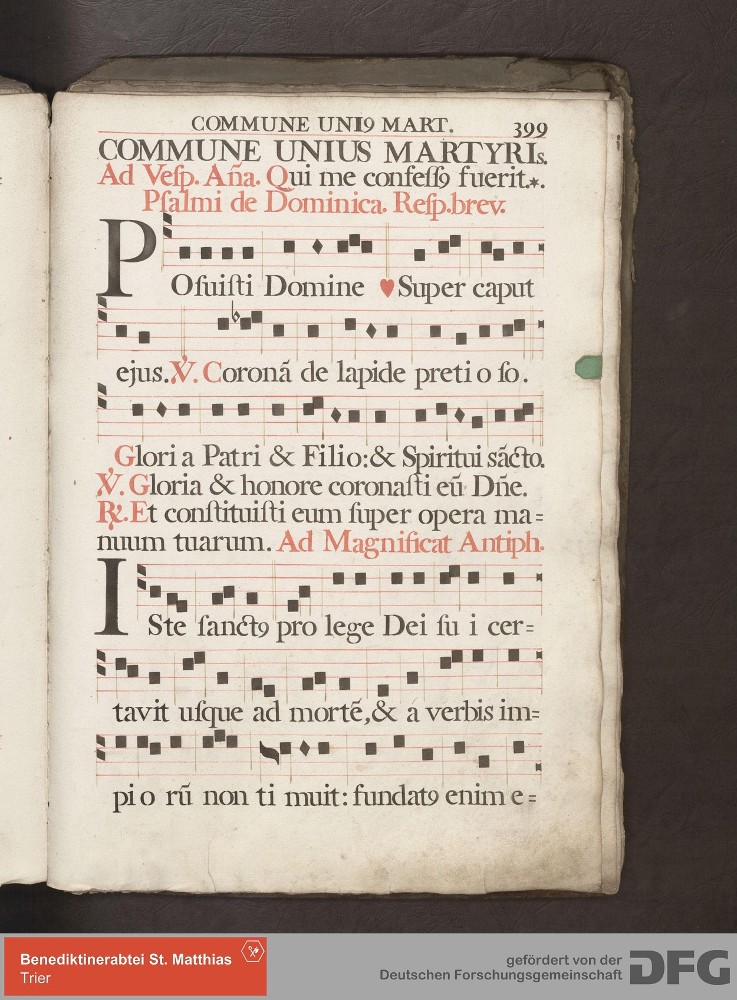 COMMUNE UNI9 MART. 399
COMMUNE UNIUS MARTYRIs.
Ad Veſp. Aña. Qui me confeſſ9 fuerit.*.
Pſalmi de Dominica. Reſp.brev.
POſuiſti Domine ♥ Super caput
ejus. ℣. Coronã de lapide preti o ſo.
Glori a Patri & Filio:& Spiritui sãcto.
℣. Gloria & honore coronaſti eũ Dñe.
℟. Et conſtituiſti eum ſuper opera ma=
nuum tuarum. Ad Magnificat Antiph.
ISte ſanct9 pro lege Dei ſu i cer=
tavit uſque ad mortẽ,& a verbis im=
pi o rũ non ti muit: fundat9 enim e=
Benediktinerabtei St. Matthias
Trier
gefördert von der
Deutschen Forschungsgemeinschaft
DFG